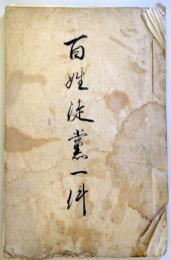 百姓徒黨一件